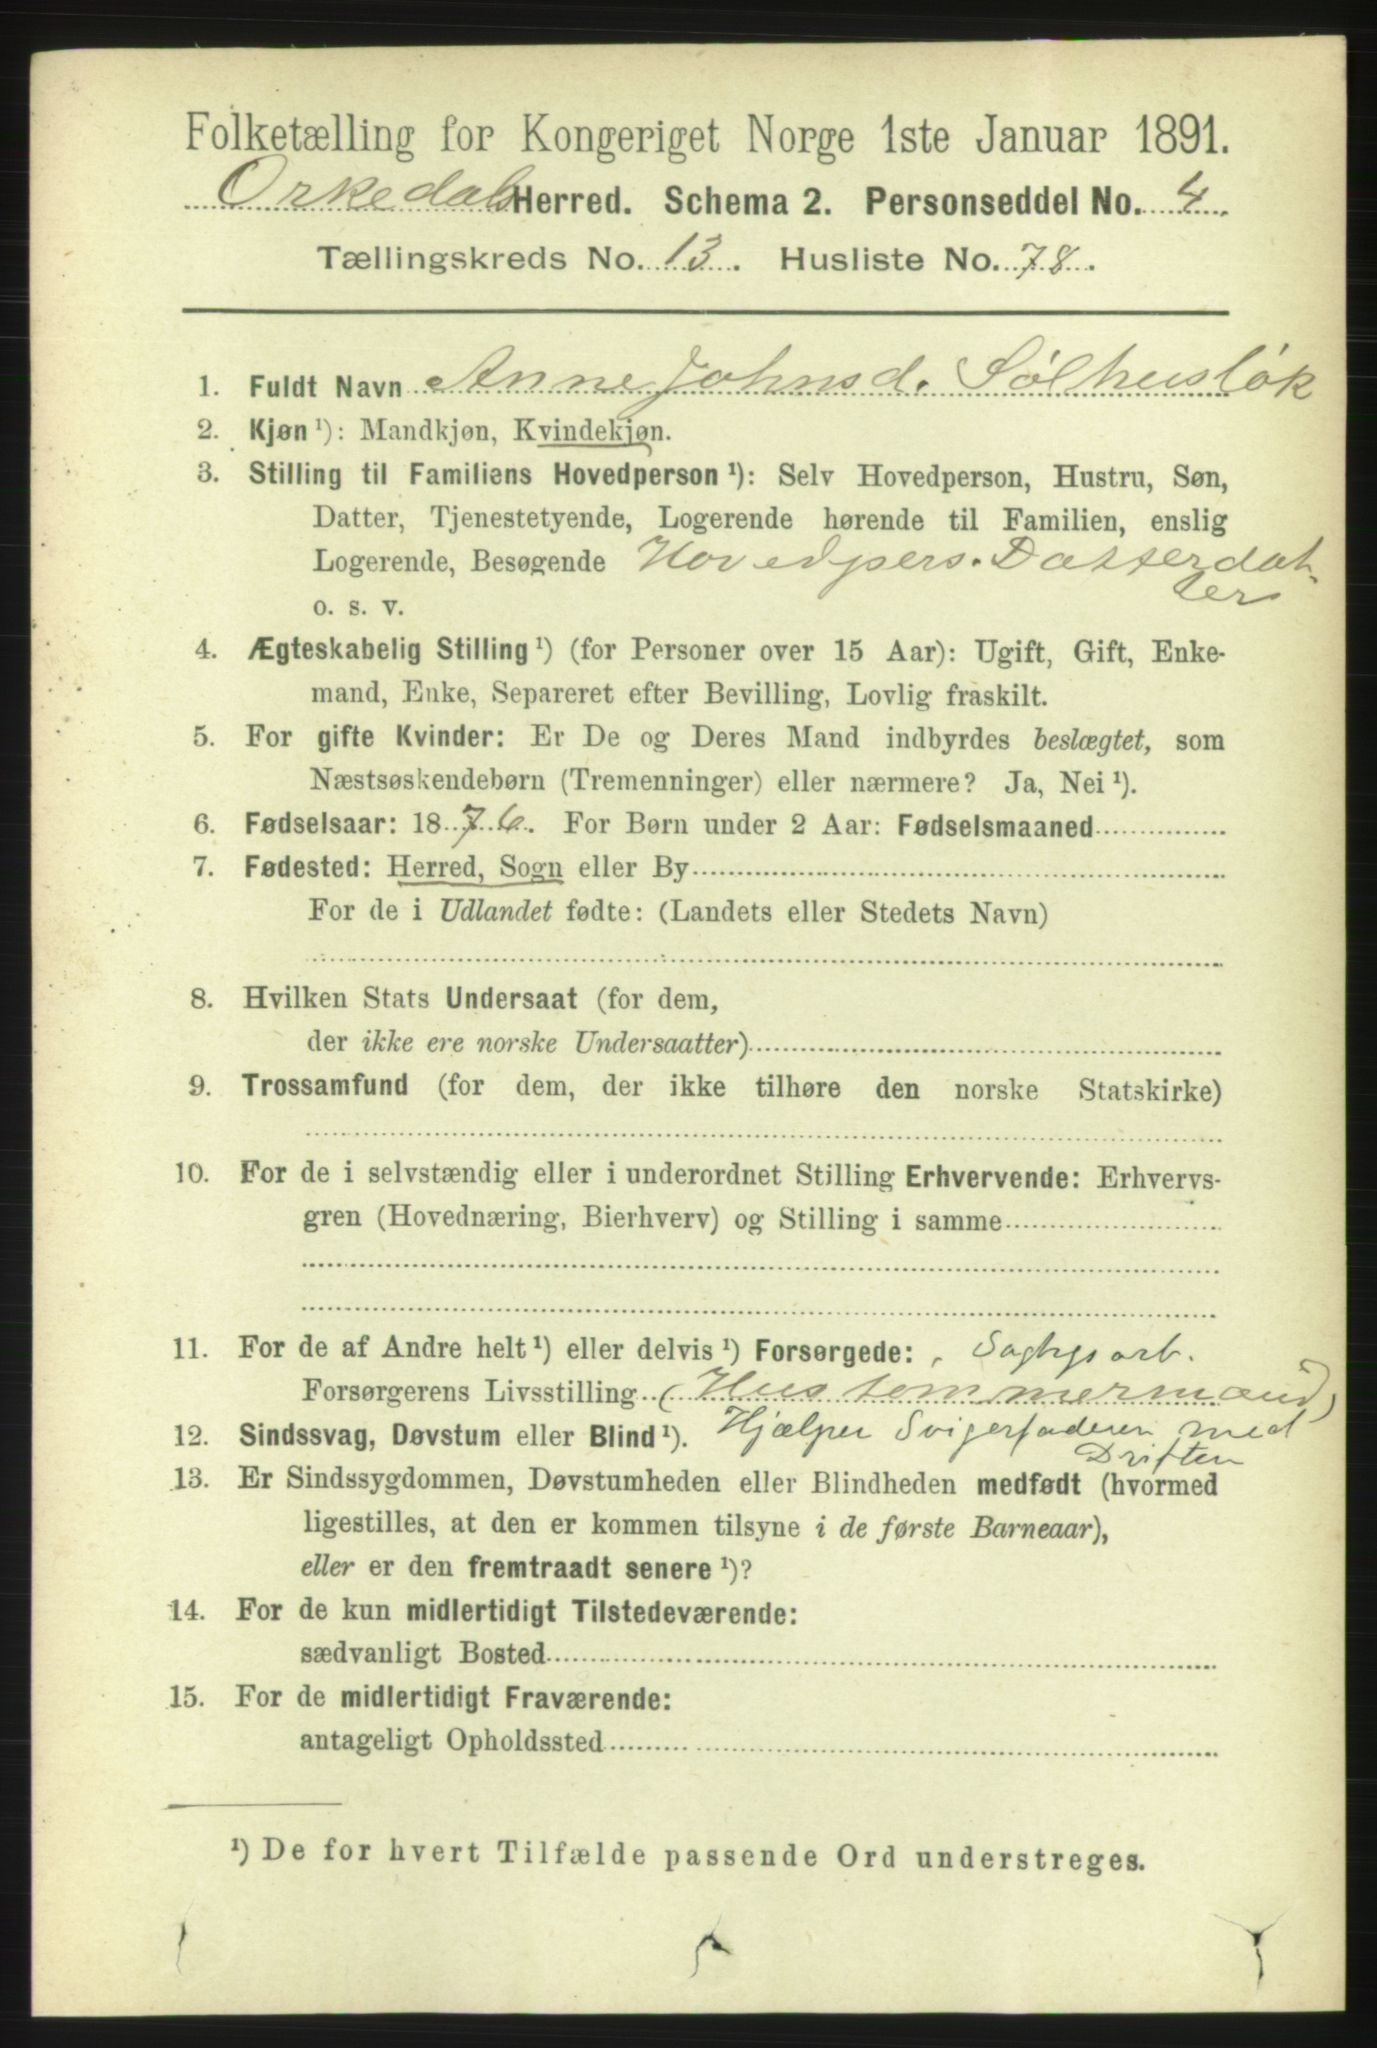 Folketælling for Kongeriget Norge 1ste Januar 1891.
Orkedals Herred. Schema 2. Personseddel No. 4.
Tællingskreds No. 13. Husliste No. 78.
1. Fuldt Navn Anne Johnsd. Sølhusløk
2. Kjøn ¹): Mandkjøn, Kvindekjøn.
3. Stilling til Familiens Hovedperson ¹): Selv Hovedperson, Hustru, Søn,
Datter, Tjenestetyende, Logerende hørende til Familien, enslig
Logerende, Besøgende Hovedpers. Datterdat-
ter
o. s. v.
4. Ægteskabelig Stilling ¹) (for Personer over 15 Aar): Ugift, Gift, Enke-
mand, Enke, Separeret efter Bevilling, Lovlig fraskilt.
5. For gifte Kvinder: Er De og Deres Mand indbyrdes beslægtet, som
Næstsøskendebørn (Tremenninger) eller nærmere? Ja, Nei ¹).
6. Fødselsaar: 1876. For Børn under 2 Aar: Fødselsmaaned
7. Fødested: Herred, Sogn eller By
For de i Udlandet fødte: (Landets eller Stedets Navn)
8. Hvilken Stats Undersaat (for dem,
der ikke ere norske Undersaatter)
9. Trossamfund (for dem, der ikke tilhøre den norske Statskirke)
10. For de i selvstændig eller i underordnet Stilling Erhvervende: Erhvervs-
gren (Hovednæring, Bierhverv) og Stilling i samme
11. For de af Andre helt ¹) eller delvis ¹) Forsørgede: Sagbgsarb.
Forsørgerens Livsstilling (Hustømmermand)
12. Sindssvag, Døvstum eller Blind ¹). Hjælper Svigerfaderen med
Driften
13. Er Sindssygdommen, Døvstumheden eller Blindheden medfødt (hvormed
ligestilles, at den er kommen tilsyne i de første Barneaar),
eller er den fremtraadt senere ¹)?
14. For de kun midlertidigt Tilstedeværende:
sædvanligt Bosted
15. For de midlertidigt Fraværende:
antageligt Opholdssted
¹) De for hvert Tilfælde passende Ord understreges.